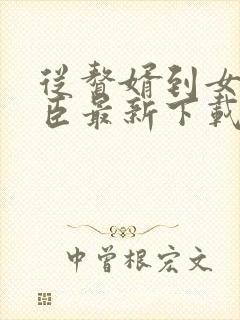 從贅婿到女
臣最新下載
中曾根宏文